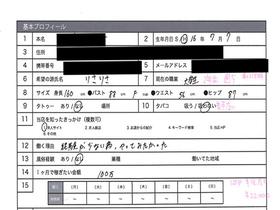 基本プロフィール
1 本名 2 生年月日 S H 16年 7月 7日
3 住所
4 携帯番号 5 メールアドレス
6 希望の源氏名 りさりさ 7 現在の職業
8 サイズ 身長 160 cm バスト 88 cm ウエスト 56 cm ヒップ 87
9 タトゥー あり / なし 10 タバコ 吸う / 吸わない
11 当店を知ったきっかけ (複数可)
1 求人サイト 2 求人雑誌 3 お店からの紹介 4 キーワード検索 5 当店HP
6 その他
12 働く理由
13 風俗経験 あり / なし 業種 働いてた地域
14 1ヶ月で稼ぎたい金額 100万
15 (月) (火) (水) (木) (金) (土) (日)
~ ~ ~ ~ ~ ~ ~